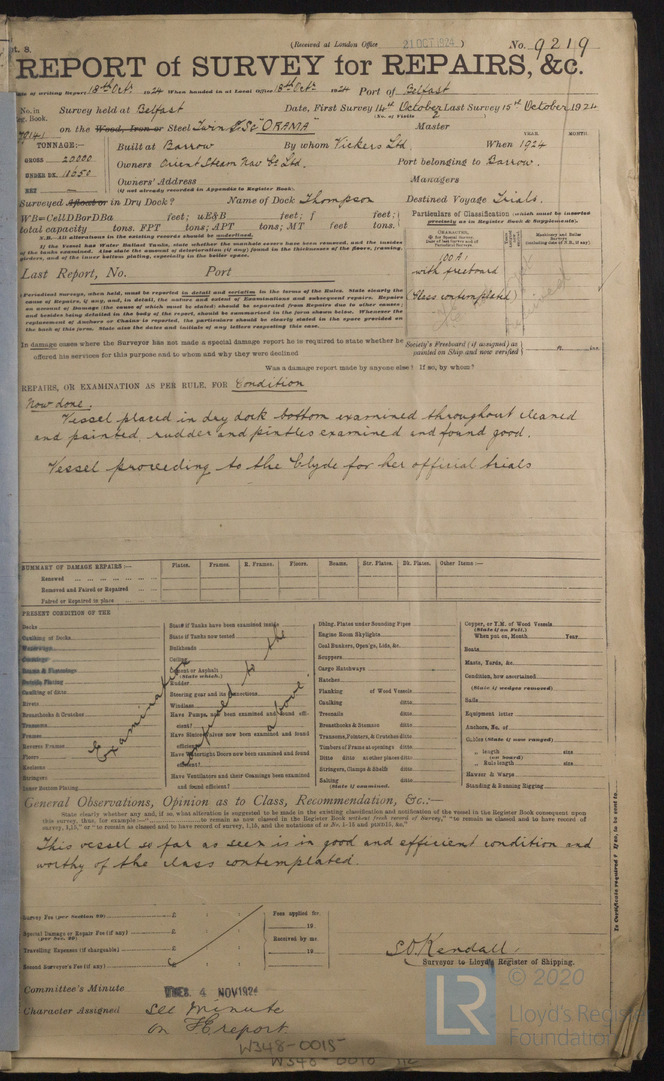 pt. 8.
(Received at London Office 21 OCT 1924)
No. 9219
REPORT of SURVEY for REPAIRS, &c.
Date of writing Report 18th Oct. 1924 When handed in at Local Office 18th Oct. 1924 Port of Belfast
No. in Reg. Book. Survey held at Belfast Date, First Survey 14th October Last Survey 15th October 1924
(No. of Visits 2)
on the Wood, Iron or Steel Twin S.S. "ORAMA" Master
TONNAGE:— Built at Barrow By whom Vickers Ltd. When 1924
YEAR. MONTH.
GROSS 20000 Owners Orient Steam Nav Co Ltd. Port belonging to Barrow.
UNDER DK. 11650 Owners' Address Managers
(if not already recorded in Appendix to Register Book).
NET
Surveyed Afloat or in Dry Dock? Name of Dock Thompson Destined Voyage Trials.
WB=CellDBorDBa feet; uE&B feet; f feet;
total capacity tons. FPT tons; APT tons; MT feet tons.
N.B.—All alterations in the existing records should be underlined.
If the Vessel has Water Ballast Tanks, state whether the manhole covers have been removed, and the insides of the tanks examined. Also state the amount of deterioration (if any) found in the thicknesses of the floors, framing, girders, and of the inner bottom plating, especially in the boiler space.
Particulars of Classification (which must be inserted precisely as in Register Book & Supplements).
CHARACTER,
Machinery and Boiler Surveys
Last Report, No. Port
100A1
with freeboard
(Class contemplated)
(Periodical Surveys, when held, must be reported in detail and verbatim in the terms of the Rules. State clearly the cause of Repairs, if any, and, in detail, the nature and extent of Examinations and subsequent repairs. Repairs on account of Damage (the cause of which must be stated) should be separated from Repairs due to other causes; and besides being detailed in the body of the report, should be summarised in the form shown below. Whenever the replacement of Anchors or Chains is reported, the particulars should be clearly stated in the space provided on the back of this form. State also the dates and initials of any letters respecting this case.
In damage cases where the Surveyor has not made a special damage report he is required to state whether he offered his services for this purpose and to whom and why they were declined
Society's Freeboard (if assigned) as painted on Ship and now verified
ft. ins.
Was a damage report made by anyone else? If so, by whom?
REPAIRS, OR EXAMINATION AS PER RULE, FOR Condition
Now done.
Vessel placed in dry dock bottom examined throughout cleaned
and painted, rudder and pintles examined and found good.
Vessel proceeding to the Clyde for her official trials
SUMMARY OF DAMAGE REPAIRS:— Plates. Frames. R. Frames. Floors. Beams. Str. Plates. Bk. Plates. Other Items:—
Renewed
Removed and Faired or Repaired
Faired or Repaired in place
PRESENT CONDITION OF THE
Decks
Caulking of Decks
Waterways
Coamings
Beams & Fastenings
Outside Plating
Caulking of ditto
Rivets
Breasthooks & Crutches
Transoms
Frames
Reverse Frames
Floors
Keelsons
Stringers
Inner Bottom Plating
State if Tanks have been examined inside
State if Tanks now tested
Bulkheads
Ceiling
Cement or Asphalt
(State which.)
Rudder
Steering gear and its connections
Windlass
Have Pumps now been examined and found efficient?
Have Sluices now been examined and found efficient?
Have Watertight Doors now been examined and found efficient?
Have Ventilators and their Coamings been examined and found efficient?
Examination confined to the above
Dblng. Plates under Sounding Pipes
Engine Room Skylights
Coal Bunkers, Open'gs, Lids, &c.
Scuppers
Cargo Hatchways
Hatches
Planking of Wood Vessels
Caulking ditto
Treenails ditto
Breasthooks & Stemson ditto
Transoms, Pointers, & Crutches ditto
Timbers of Frame at openings ditto
Ditto ditto at other places ditto
Stringers, Clamps & Shelfs ditto
Salting ditto
(State if examined.
Copper, or Y.M. of Wood Vessels
(State if on Felt.)
When put on, Month Year
Boats
Masts, Yards, &c.
Condition, how ascertained
(State if wedges removed)
Sails
Equipment letter
Anchors, No. of
Cables (State if now ranged)
„ length size
(on board)
„ Rule length size
Hawser & Warps
Standing & Running Rigging
General Observations, Opinion as to Class, Recommendation, &c.:—
State clearly whether any and, if so, what alteration is suggested to be made in the existing classification and notification of the vessel in the Register Book consequent upon this survey, thus, for example—" to remain as now classed in the Register Book without fresh record of Survey," "to remain as classed and to have record of survey, 1,15," or "to remain as classed and to have record of survey, 1,15, and the notations of ss No. 1-15 and pt&ND15, &c."
This vessel so far as seen is in good and efficient condition and
worthy of the class contemplated
Survey Fee (per Section 29) £
Special Damage or Repair Fee (if any) £
(per Sec. 29)
Travelling Expenses (if chargeable) £
Second Surveyor's Fee (if any) £
Fees applied for
19
Received by me
19
S.O. Kendall
Surveyor to Lloyd's Register of Shipping.
Committee's Minute TUES. 4 NOV 1924
Character Assigned See minute
on FE report
W348-0015
LR
© 2020
Lloyd's Register
Foundation